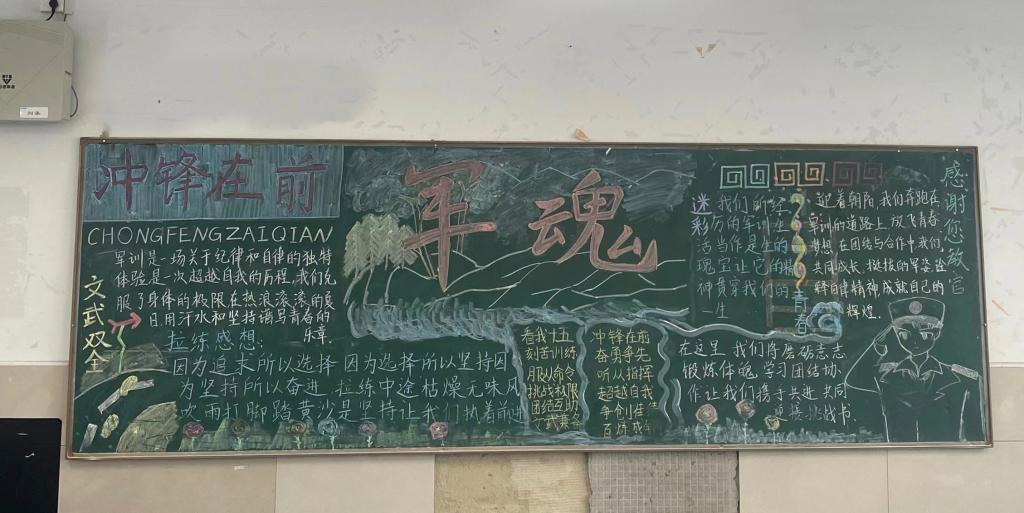 冲锋在前
CHONGFENGZAIQIAN
军训是一场关于纪律和自律的独特
体验是一次超越自我的历程,我们克
服了身体的极限在热浪滚滚的夏
日用汗水和坚持谱写青春的
乐章
文武双全
拉练感想:
因为追求所以选择 因为选择所以坚持因
为坚持所以奋进 拉练中途枯燥无味风
吹雨打脚踏黄沙是坚持让我们执着前进
军魂
看我十五
刻苦训练
服从命令
挑战极限
团结互助
冲锋在前
奋勇争先
听从指挥
超越自我
争创佳
百炼成
迷彩
我们所经
历的军训生
活当作是人生的
瑰宝让它的精
神贯穿我们的
一生
青春
迎着朝阳,我们奔跑在
军训的道路上,放飞青春
梦想,在团结与合作中我们
共同成长,挺拔的军姿诠
释自律精神成就自己的
辉煌.
感谢您教官
在这里,我们将磨砺意志
锻炼体魄,学习团结协
作让我们携手共进,共同
迎接挑战书